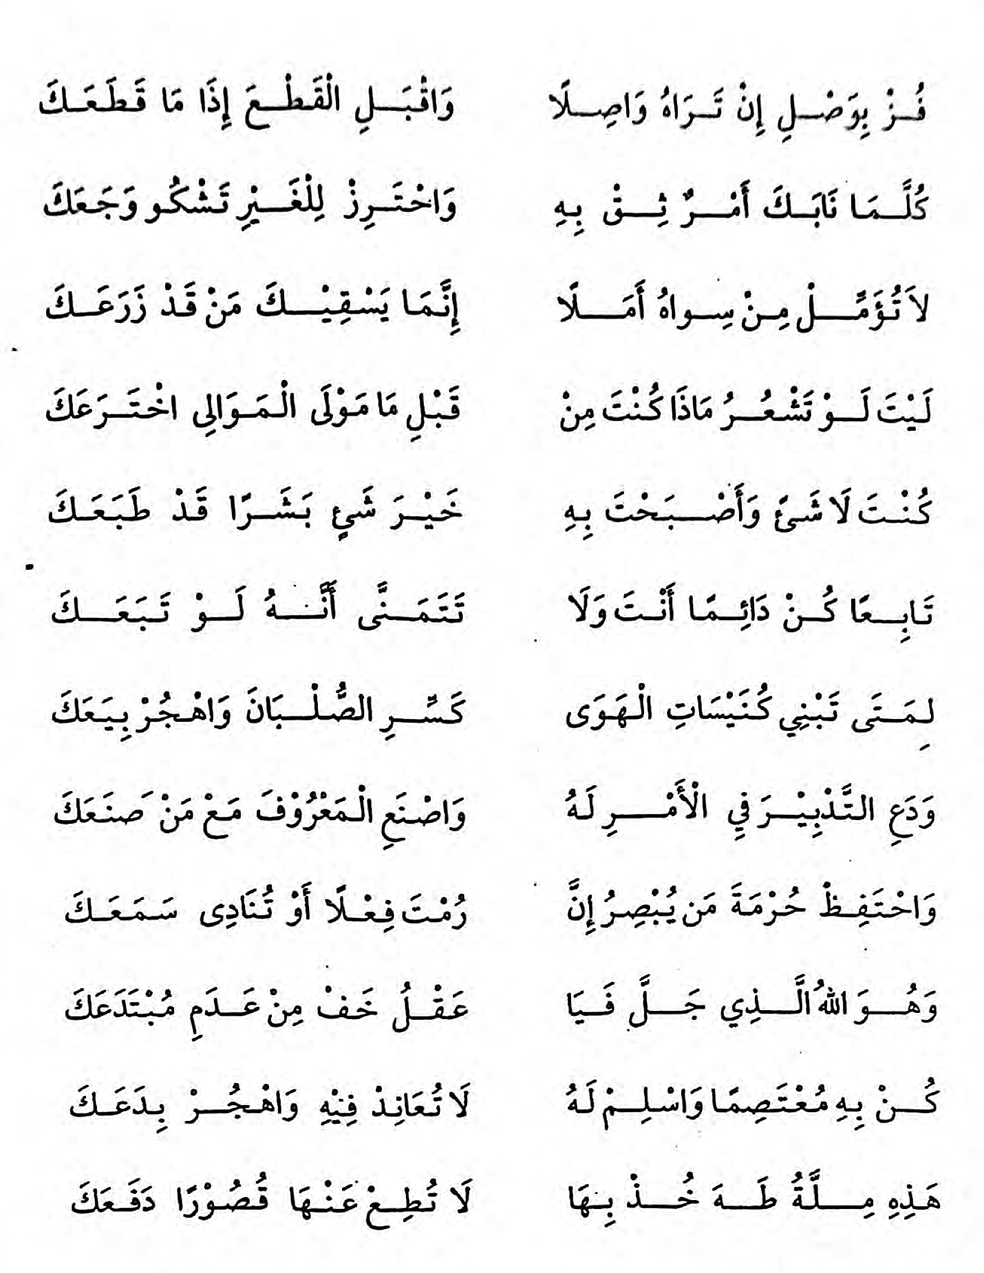 فُـزْ بِوَصْـلِ إِنْ تَـرَاهُ وَاصِـلًا وَاقْبَـلِ الْقَطْـعَ إِذَا مَا قَـطَعَـكَ
كُلَّـمَا نَابَـكَ أَمْـرٌ ثِـقْ بِهِ وَاحْتَـرِزْ لِلْغَـيْرِ تَشْكُو وَجَعَكَ
لاَ تُؤَمِّـلْ مِـنْ سِـواهُ أَمَـلًا إِنَّمَا يَسْقِيْـكَ مَنْ قَدْ زَرَعَـكَ
لَيْتَ لَـوْ تَشْعُـرُ مَاذَا كُنْتَ مِنْ قَبْلِ مَا مَوْلَى الْـمَـوَالِى اخْتَـرَعَكَ
كُنْـتَ لَا شَـئً وَأَصْـبَـحْتَ بِهِ خَيْـرَ شَئٍ بَـشَـرًا قَدْ طَبَعَـكَ
تَابِـعًا كُـنْ دَائِـمًا أَنْتَ وَلَا تَتَمَـنَّى أَنَّـهُ لَـوْ تَـبَـعَـكَ
لِمَـتَى تَبْنِي كُنَيْسَاتِ الْـهَوَى كَسِّـرِ الصُّلْـبَانَ وَاهْـجُرْ بِيَعَكَ
وَدَعِ التَّدْبِيْـرَ فِي الْأَمْـرِ لَهُ وَاصْنَعِ الْمَعْرُوْفَ مَعْ مَنْ صَنَعَكَ
وَاحْتَفِـظْ حُرْمَةَ مَن يُبْصِرُ إِنَّ رُمْتَ فِعْـلًا أَوْ تُنَادِى سَـمَعَـكَ
وَهُـوَ اللهُ الَّـذِي جَـلَّ فَـيَا عَقْـلُ خَفْ مِنْ عَـدَمِ مُبْتَدَعَكَ
كُـنْ بِهِ مُعْتَصِمًا وَاسْلِـمْ لَهُ لَا تُعَانِدْ فِيْهِ وَاهْـجُـرْ بِـدَعَـكَ
هَذِهِ مِـلَّةُ طَـهَ خُـذْ بِـهَا لَا تُطِـعْ عَنْـهَا قُصُوْرًا دَفَـعَكَ